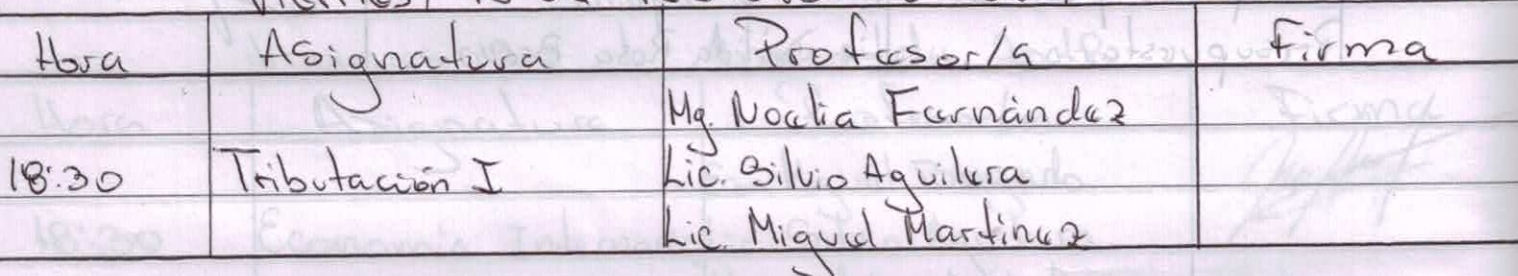 Hora Asignatura Profesor/a Firma
Mg. Noelia Fernández
18:30 Tributación I Lic. Silvio Aguilera
Lic. Miguel Martínez